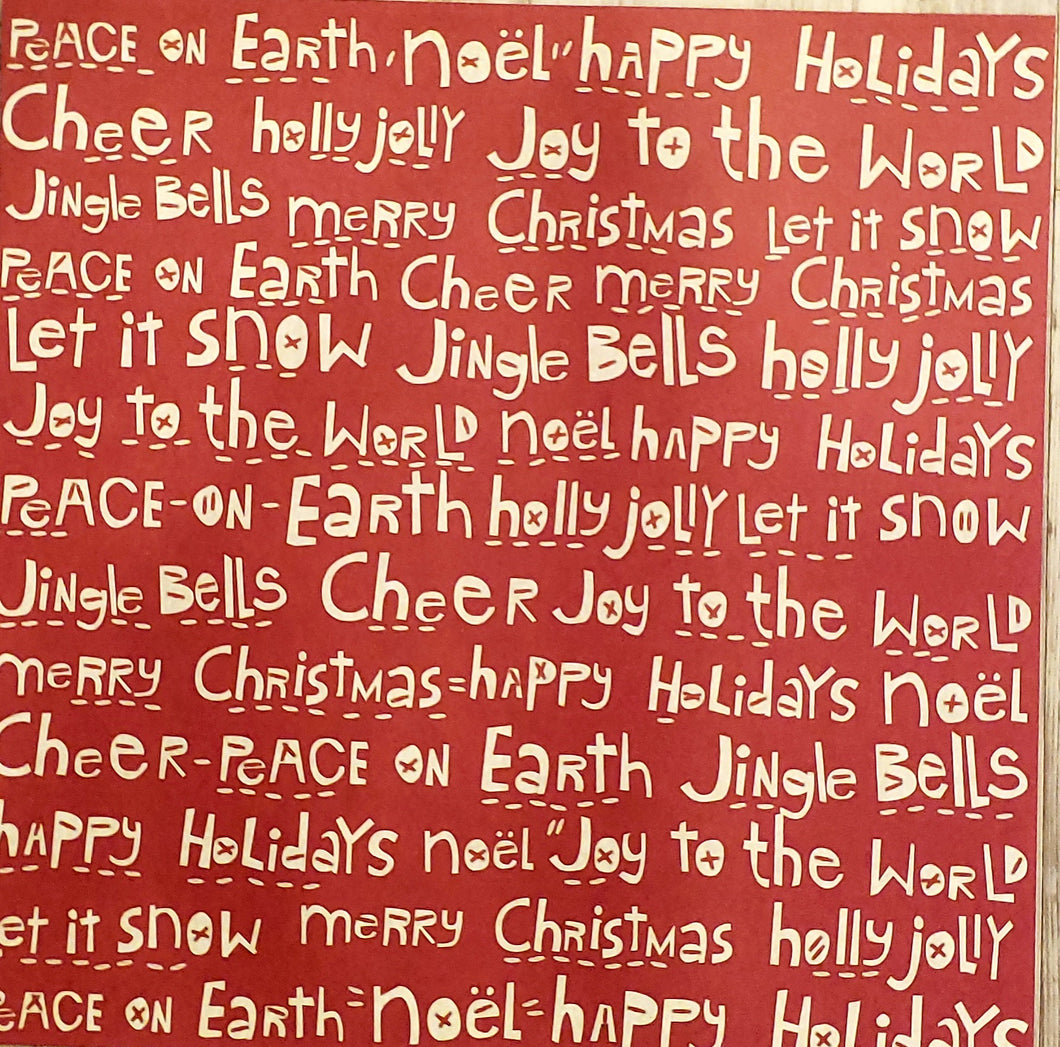 PeACE ON EaRth "noël" hAPPy HoLidaYS
CheeR holly jollY Joy to the WoRLD
JiNgle BellS meRRy ChRistMas Let it snow
PeACE ON EaRth CheeR meRRy ChRistMas
Let it snow JiNgle BellS holly jollY
Joy to the WoRLD noël hAPPy HoLidaYs
PeACE-ON-EaRth holly jollY Let it snow
JiNgle BellS CheeR Joy to the WoRLD
meRRy ChRistMas=hAPPy HoLidaYs noël
CheeR-PeACE ON EaRth JiNgle BellS
hAPPy HoLidaYs noël "Joy to the WoRLD
et it snow meRRy ChRistMas holly jollY
eACE ON EaRth=noël=hAPPy HoLidaYs